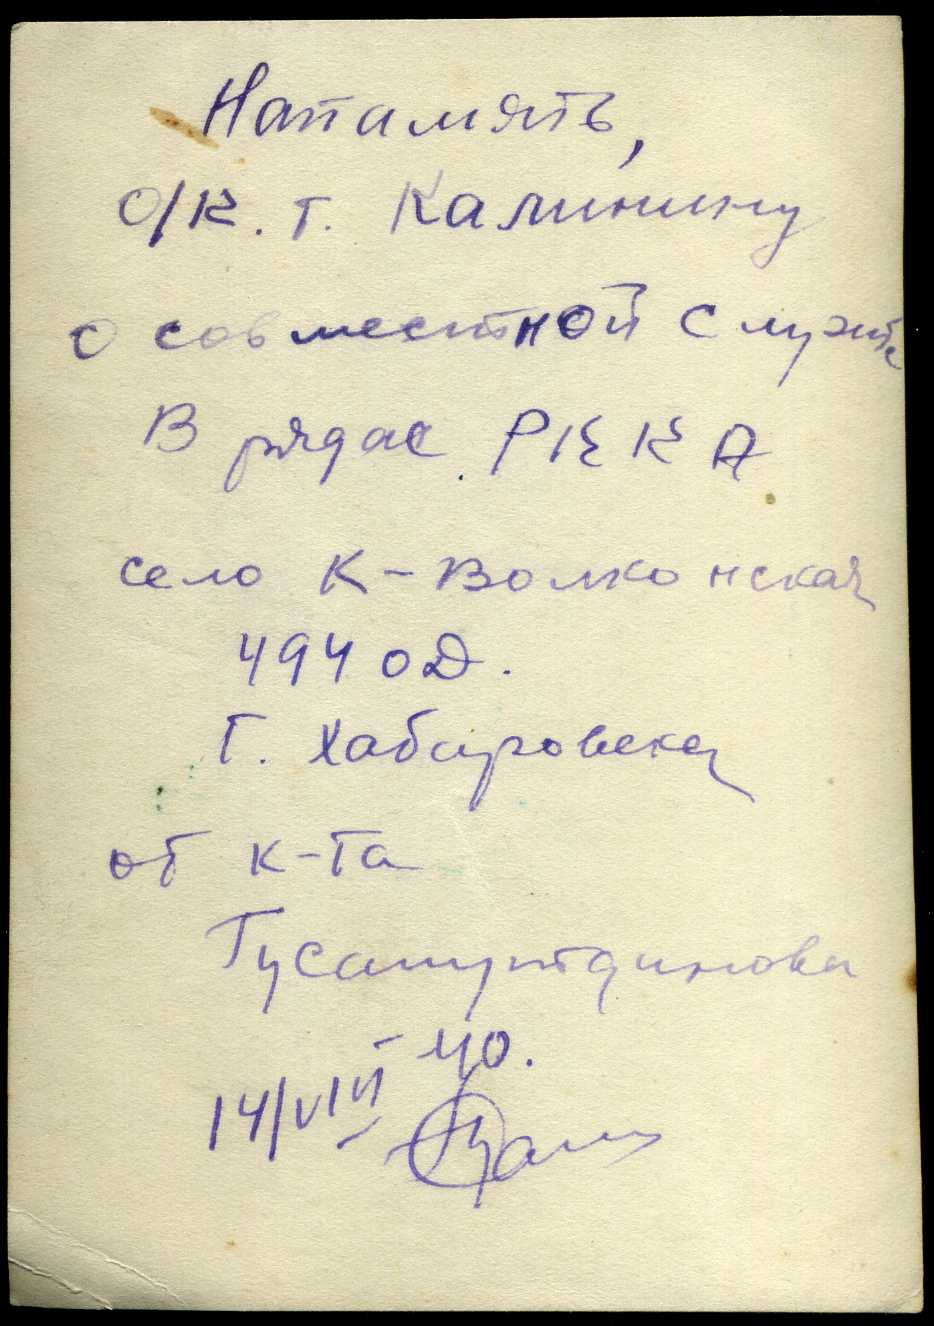 Напамять,
О/К. т. Калинину
о совместной службе
В рядах РККА
село К-Волконская
494 ОД.
Г. Хабаровска
от к-та
14/VIII - 40.